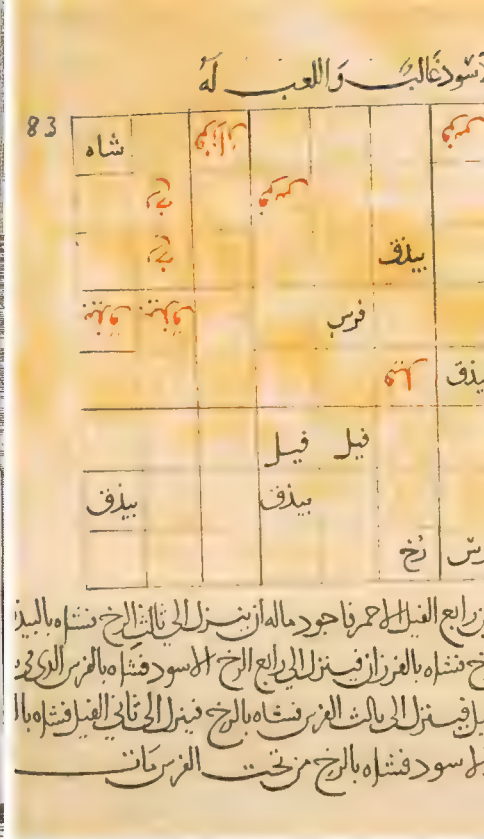 الاسود غالب واللعب له
83
شاه فرزان فرس
رخ فرس
رخ بيذق
بيذق بيذق فرس
فيل بيذق
فيل فيل
بيذق بيذق
رخ فرس
رابع الفيل الاحمر فاجود ماله ان ينزل الى ثالث الرخ فشاه
فشاه بالفرزان فينزل الى رابع الرخ الاسود فشاه بالفرس الذي في
فينزل الى ثالث الفرس فشاه بالرخ فينزل الى ثاني الفيل فشاه
الاسود فشاه بالرخ من تحت الفرس مات